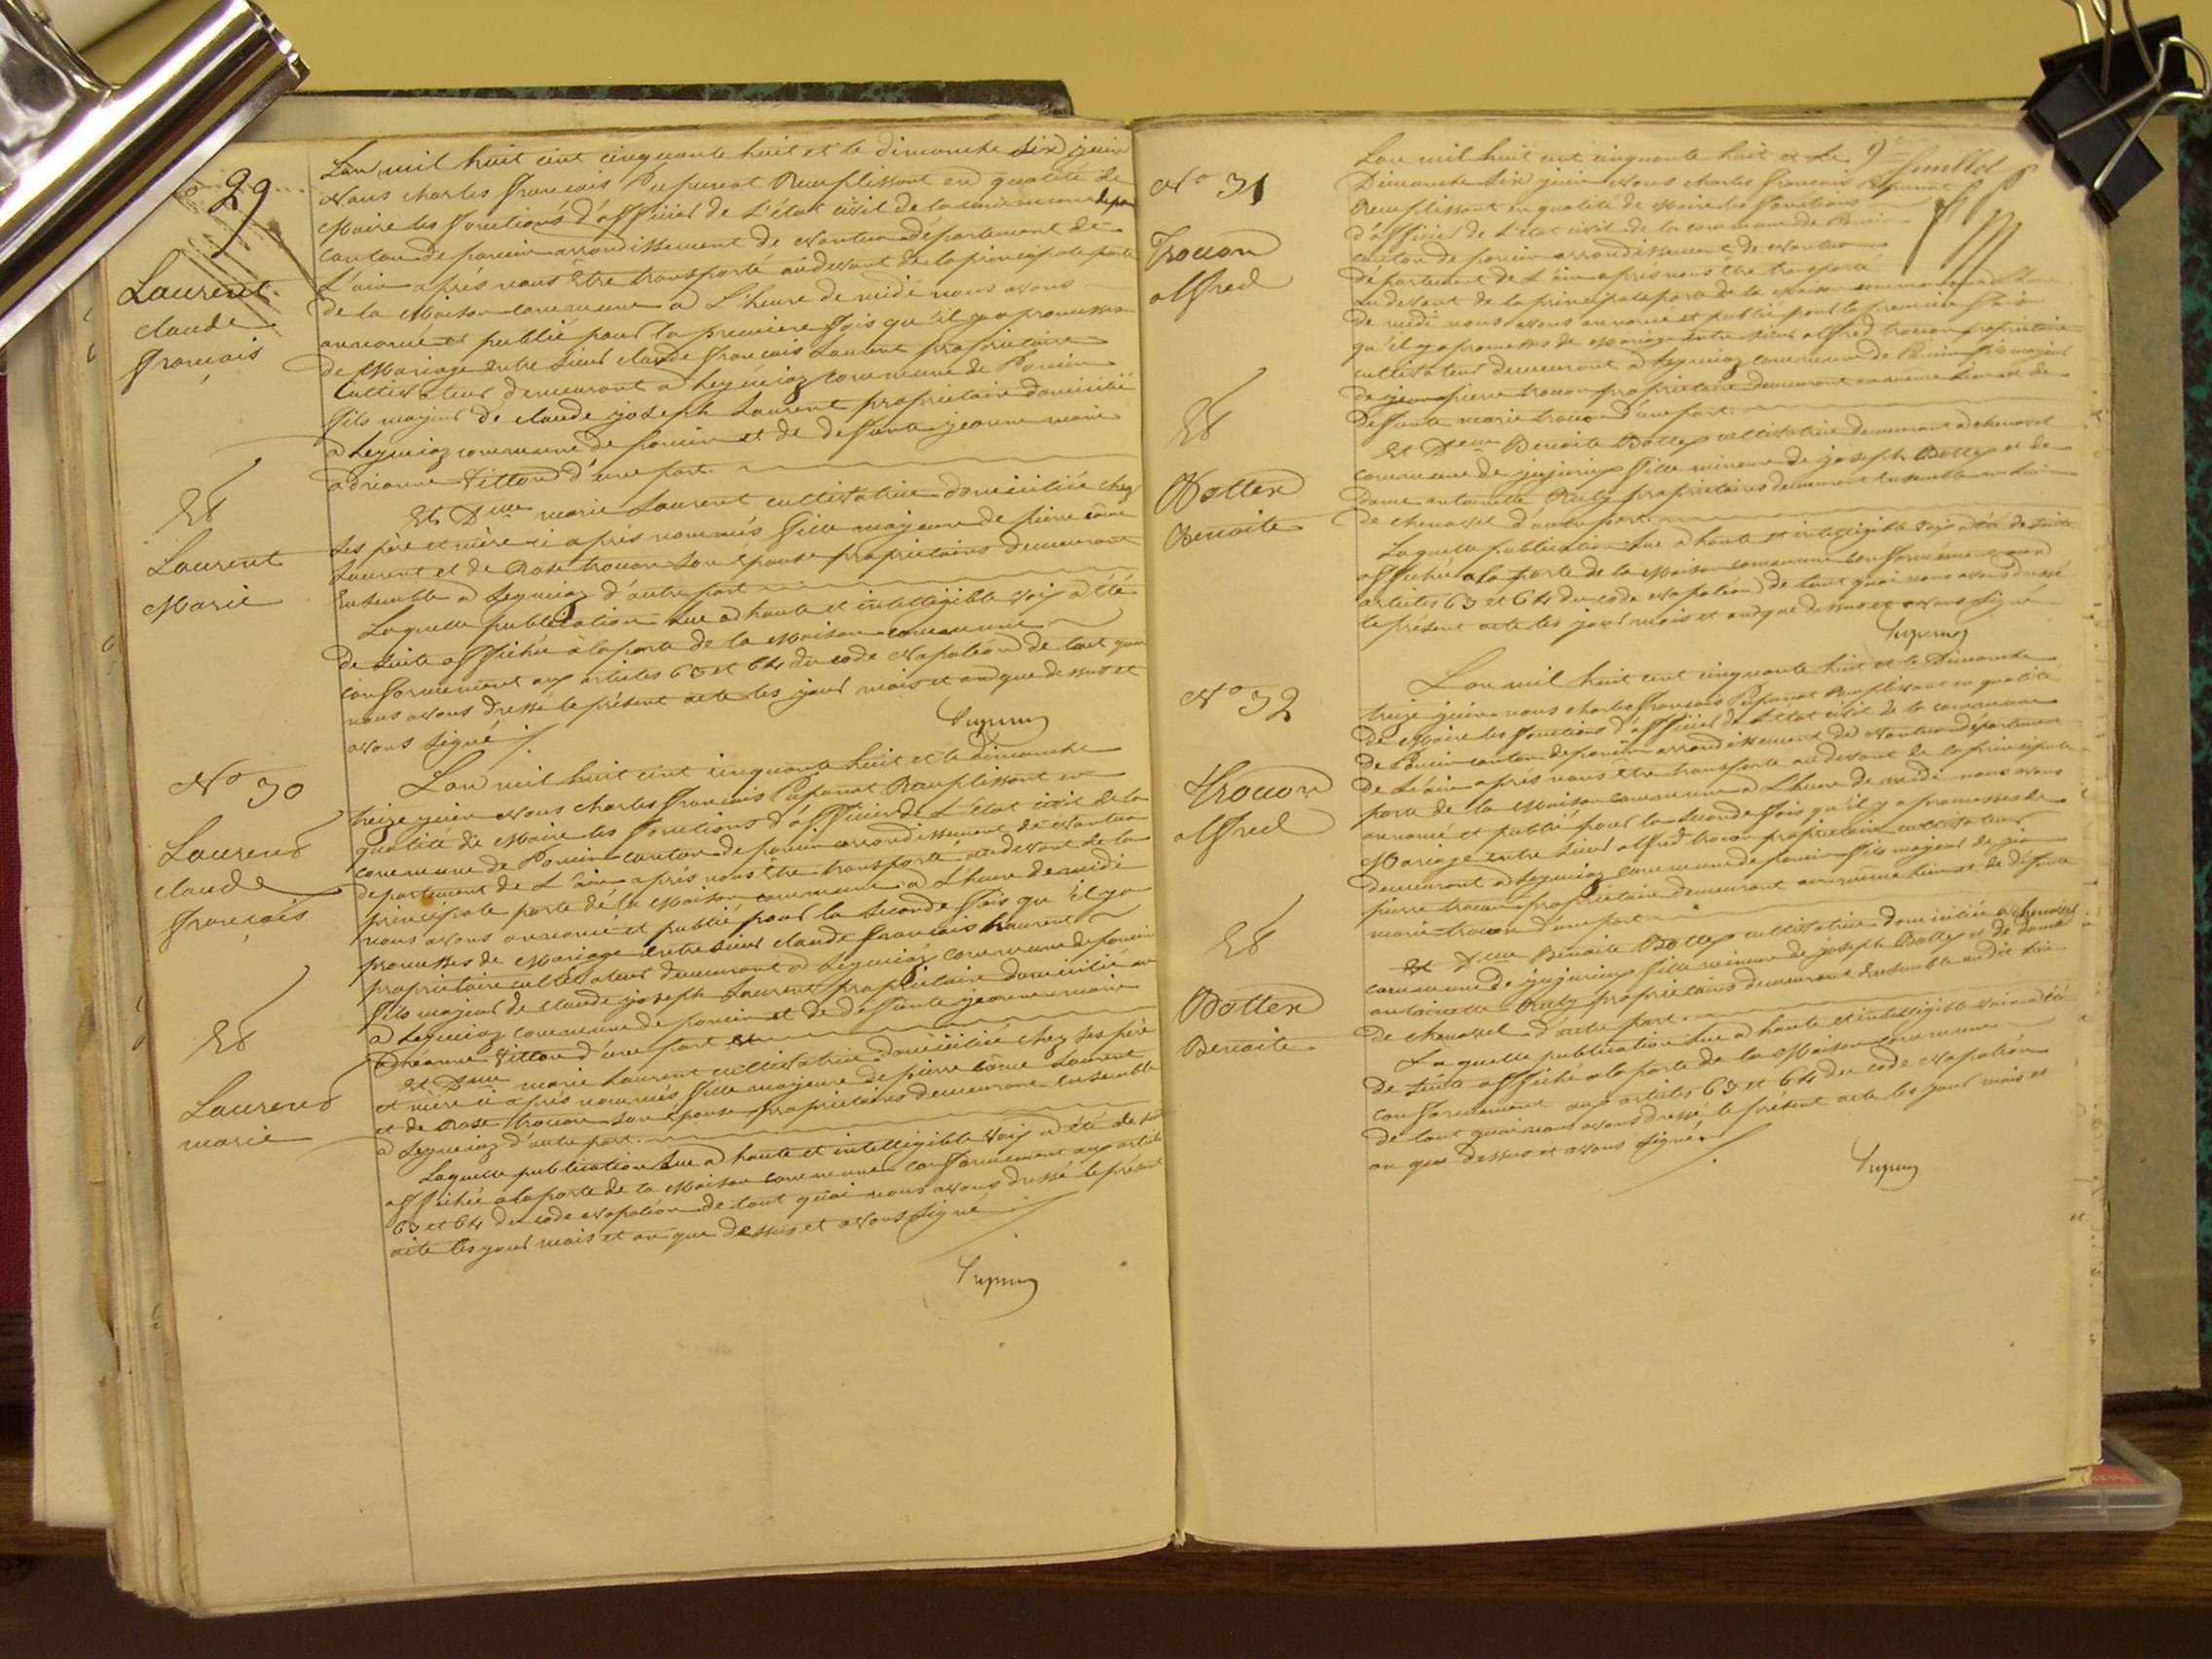 29
Laurent
claude
français
Et
Laurent
Marie
L'an mil huit cent cinquante huit et le dimanche six juin
Nous charles français Pupunat Remplissant en qualité de
Maire les fonctions d'officier de L'état civil de la commune de
canton de poncin arrondissement de Nantua département de
L'ain après nous être transporté audevant de la principale porte
de la Maison commune a L'heure de midi nous avons
annoncé et publié pour la premiere fois qu'il y a promesses
de Mariage entre sieur claude français Laurent propriétaire
Cultivateur demeurant a Leymiaz commune de Poncin
fils majeur de claude joseph Laurent propriétaire domicilié
a Leymiaz commune de Poncin et de defunte jeanne marie
adrianne Vitton d'une part.
Et Dlle marie Laurent cultivatrice domiciliée chez
ses père et mère ci après nommés fille majeure de pierre côme
Laurent et de Rose trocon son épouse propriétaires demeurant
Ensemble a Leymiaz d'autre part
Laquelle publication lue a haute et intelligible voix a été
de suite affichée à la porte de la Maison commune
conformement aux articles 63 et 64 du code Napoléon de tout quoi
nous avons dressé le présent acte les jour mois et an que dessus et
avons signé
No 30
Laurent
claude
français
Et
Laurent
marie
L'an mil huit cent cinquante huit et le dimanche
treize juin Nous charles français Pupunat Remplissant en
qualité de Maire les fonctions d'officier de L'état civil de la
commune de Poncin canton de poncin arrondissement de Nantua
departement de L'ain après nous être transporté audevant de la
principale porte de la Maison commune a L'heure de midi
nous avons annoncé et publié pour la seconde fois qu'il y a
promesses de Mariage entre sieur claude français Laurent
propriétaire cultivateur demeurant a Leymiaz commune de poncin
fils majeur de claude joseph Laurent propriétaire domicilié au
a Leymiaz commune de poncin et de defunte jeanne marie
adrianne Vitton d'une part et
et Dlle marie Laurent cultivatrice domiciliée chez ses père
et mère ci après nommés fille majeure de pierre côme Laurent
et de Rose trocon son épouse propriétaires demeurant Ensemble
a Leymiaz d'autre part.
Laquelle publication lue a haute et intelligible voix a été de
affichée a la porte de la Maison commune conformement aux articles
63 et 64 du code Napoléon de tout quoi nous avons dressé le présent
acte les jour mois et an que dessus et avons signé
No 31
Trocon
alfred
Et
Bottex
Benoite
9e feuillet
L'an mil huit cent cinquante huit et Le
Dimanche six juin Nous charles français Pupunat
Remplissant en qualité de Maire les fonctions
d'officier de L'état civil de la commune de Poncin
canton de poncin arrondissement de Nantua
département de L'ain après nous être transporté
audevant de la principale porte de la Maison commune a L'heure
de midi nous avons annoncé et publié pour la premiere fois
qu'il y a promesses de Mariage entre sieur alfred trocon propriétaire
cultivateur demeurant a Leymiaz commune de Poncin fils majeur
de jean pierre trocon propriétaire demeurant au même lieu et de
defunte marie trocon d'une part.
Et Dlle Benoite Bottex cultivatrice demeurant a chenavel
commune de jujurieux fille mineure de joseph Bottex et de
dame antoinette propriétaires demeurant ensemble au lieu
de chenavel d'autre part.
Laquelle publication lue a haute et intelligible voix a été de suite
affichée a la porte de la Maison commune conformement aux
articles 63 et 64 du code Napoléon de tout quoi nous avons dressé
le présent acte les jour mois et an que dessus et avons signé
No 32
Trocon
alfred
Et
Bottex
Benoite
L'an mil huit cent cinquante huit et le Dimanche
treize juin nous charles français Pupunat Remplissant en qualité
de Maire les fonctions d'officier de L'état civil de la commune
de Poncin canton de poncin arrondissement de Nantua département
de L'ain après nous être transporté audevant de la principale
porte de la Maison commune a L'heure de midi nous avons
annoncé et publié pour la seconde fois qu'il y a promesses de
Mariage entre sieur alfred trocon propriétaire cultivateur
demeurant a Leymiaz commune de poncin fils majeur de jean
pierre trocon propriétaire demeurant au même lieu et de defunte
marie trocon d'une part
Et Dlle Benoite Bottex cultivatrice domiciliée a chenavel
commune de jujurieux fille mineure de joseph Bottex et de dame
antoinette propriétaires demeurant Ensemble audit lieu
de chenavel d'autre part.
Laquelle publication lue a haute et intelligible voix a été
de suite affiché a la porte de la Maison commune
conformement aux articles 63 et 64 du code Napoléon
de tout quoi nous avons dressé le présent acte les jour mois et
an que dessus et avons signé